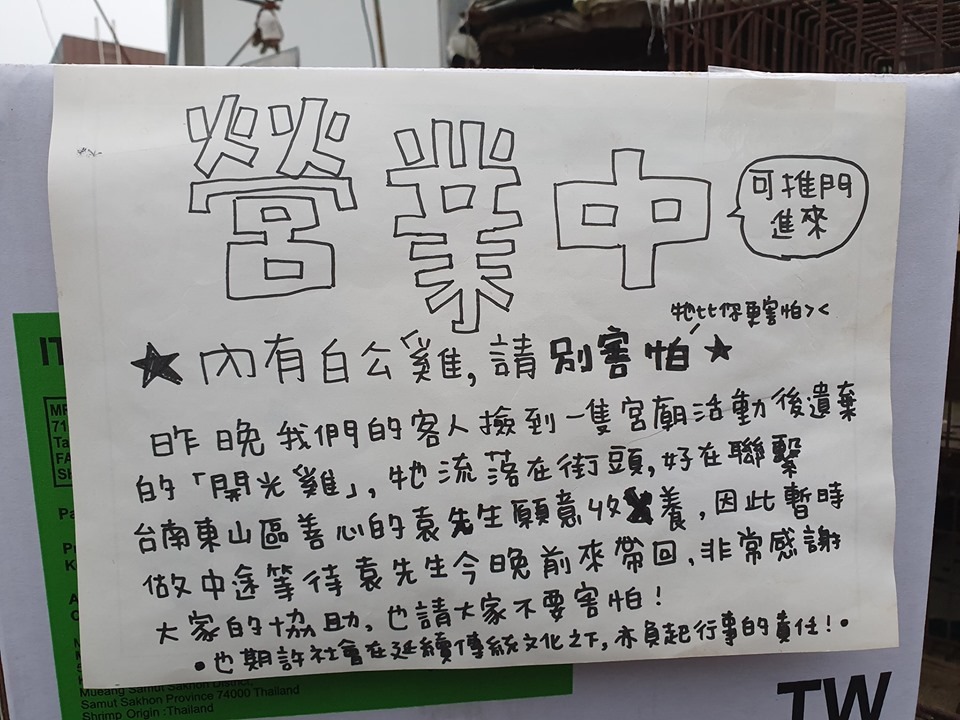 營業中
可推門
進來
牠比你更害怕><
★內有白公雞,請別害怕★
昨晚我們的客人撿到一隻宮廟活動後遺棄
的「開光雞」,牠流落在街頭,好在聯繫
台南東山區善心的袁先生願意收養,因此暫時
做中途等待袁先生今晚前來帶回,非常感謝
大家的協助,也請大家不要害怕!
•也期許社會在延續傳統文化之下,亦負起行事的責任!•
Mueang Samut Sakhon District,
Samut Sakhon Province 74000 Thailand
Shrimp Origin :Thailand
TW